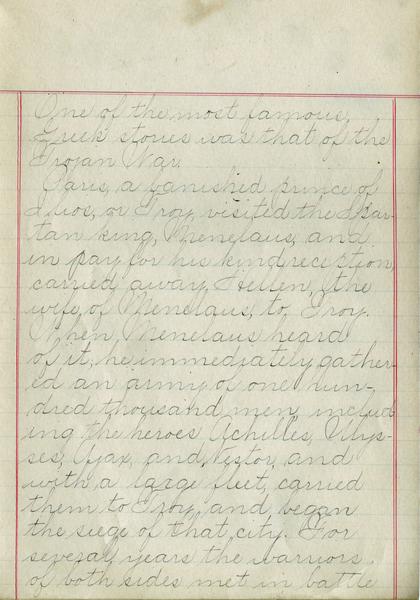 One of the most famous,
Greek stories was that of the
Trojan War.
Paris, a banished prince of
Ilios, or Troy, visited the Spar-
tan king, Menelaus, and
in pay for his kind reception,
carried away Hellen, the
wife of Menelaus, to Troy.
When Menelaus heard
of it, he immediately gather-
ed an army of one hun-
dred thousand men, includ
ing the heroes Achilles, Ulys-
ses, Ajax, and Nestor, and
with a large fleet, carried
them to Troy, and began
the siege of that city. For
several years the warriors
of both sides met in battle